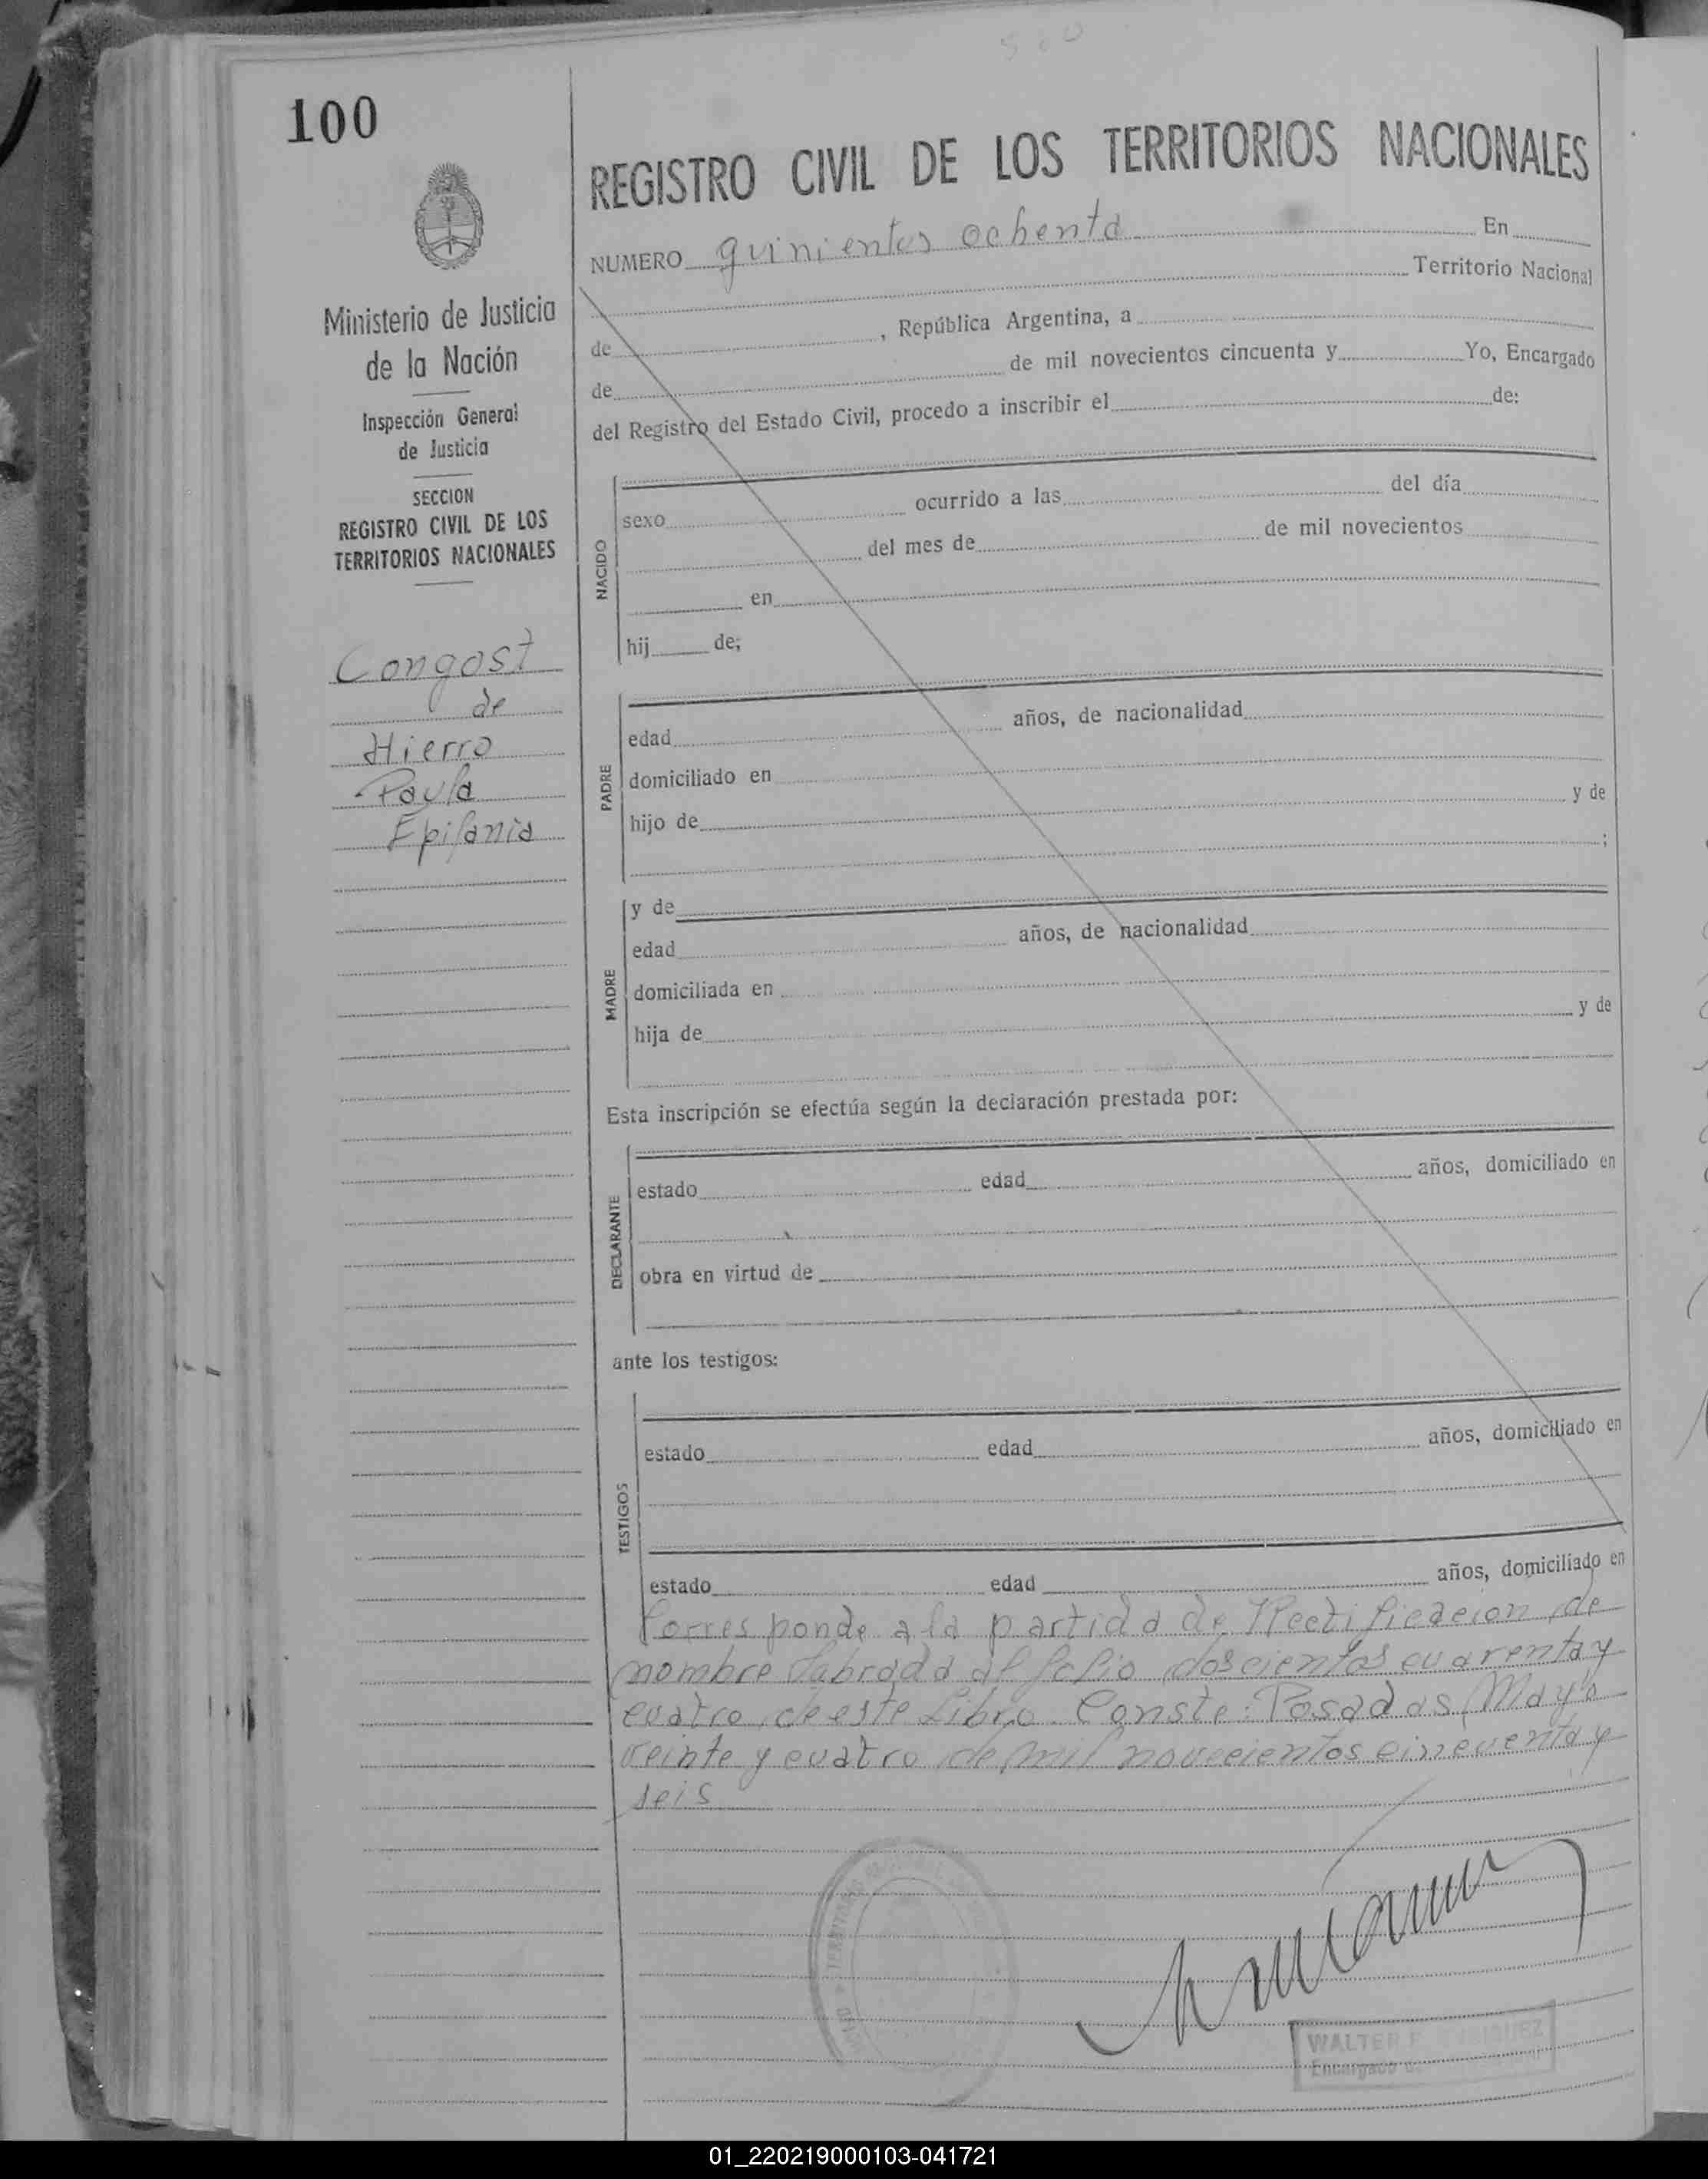 100
REGISTRO CIVIL DE LOS TERRITORIOS NACIONALES
NUMERO quinientos ochenta En
Territorio Nacional
de , República Argentina, a
de de mil novecientos cincuenta y Yo, Encargado
del Registro del Estado Civil, procedo a inscribir el de:
Ministerio de Justicia
de la Nación
Inspección General
de Justicia
SECCION
REGISTRO CIVIL DE LOS
TERRITORIOS NACIONALES
Congost
de
Hierro
Paula
Epifania
NACIDO
sexo ocurrido a las del día
del mes de de mil novecientos
en
hij de;
PADRE
edad años, de nacionalidad
domiciliado en
hijo de y de
;
MADRE
y de
edad años, de nacionalidad
domiciliada en
hija de y de
Esta inscripción se efectúa según la declaración prestada por:
DECLARANTE
estado edad años, domiciliado en
obra en virtud de
ante los testigos:
TESTIGOS
estado edad años, domiciliado en
estado edad años, domiciliado en
Corresponde a la partida de Rectificacion de
nombre labrada al folio doscientos cuarenta y
cuatro de este Libro. Conste: Posadas, Mayo
veinte y cuatro de mil novecientos cincuenta y
seis
WALTER
Encargado
01_220219000103-041721